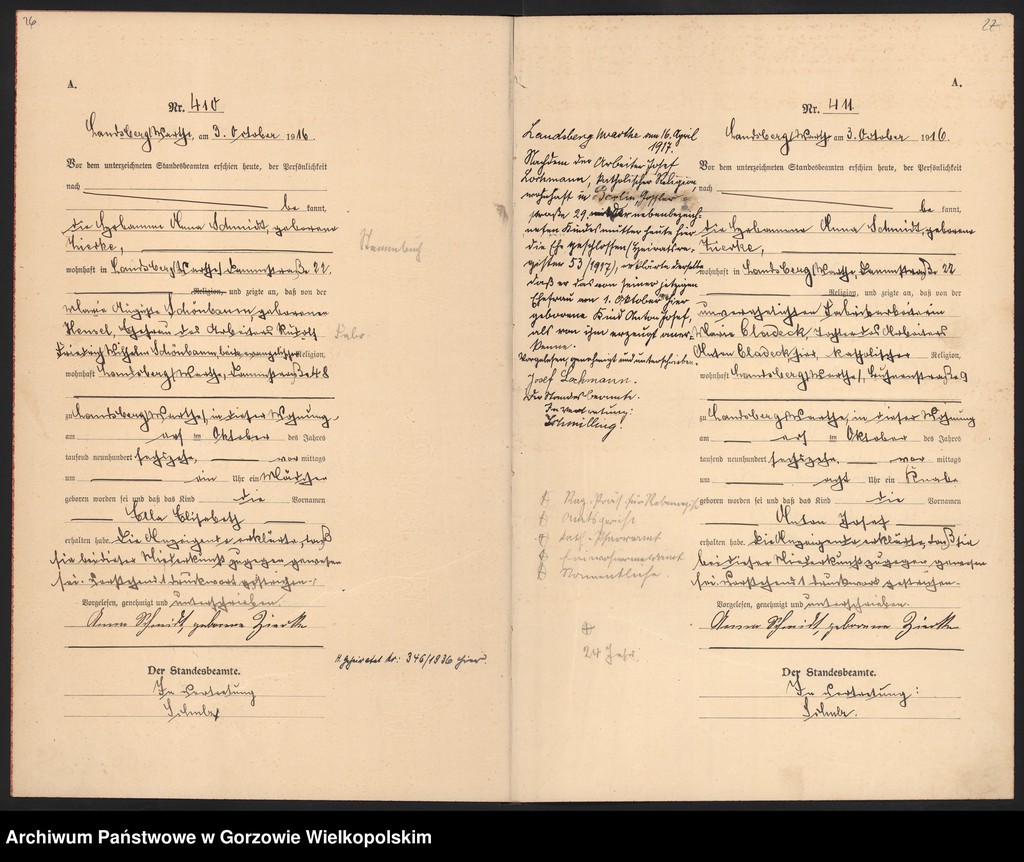 26
A.
Nr. 410
Landsberg/Warthe, am 3. October 1916.
Vor dem unterzeichneten Standesbeamten erschien heute, der Persönlichkeit
nach
be kannt,
die Hebamme Anna Schmidt, geborene
Zierke,
wohnhaft in Landsberg/Warthe, Dammstraße 22.
Religion, und zeigte an, daß von der
Marie Auguste Schönbann geborenen
Hensel, Ehefrau des Arbeiters Rudolf
Friedrich Wilhelm Schönbann, beide evangelischer Religion,
wohnhaft Landsberg/Warthe, Dammstraße 48
zu Landsberg/Warthe, in dieser Wohnung
am ers im Oktober des Jahres
tausend neunhundert sechszehn, vor mittags
um ein Uhr ein Mädchen
geboren worden sei und daß das Kind die Vornamen
Ella Elisabeth
erhalten habe. Die Anzeigende erklärte, daß
sie bei dieser Niederkunft zugegen gewesen
sei. Vorstehend 1 Druckwort gestrichen.
Vorgelesen, genehmigt und unterschrieben.
Anna Schmidt, geborene Zierke
Der Standesbeamte.
In Vertretung
Stammbuch
H. Geheiratet Nr: 346/1936 hier.
27
A.
Nr. 411
Landsberg/Warthe am 3. October 1916.
Vor dem unterzeichneten Standesbeamten erschien heute, der Persönlichkeit
nach
be kannt,
die Hebamme Anna Schmidt, geborene
Zierke,
wohnhaft in Landsberg/Warthe, Dammstraße 22
Religion, und zeigte an, daß von der
unverehelichten Fabrikarbeiterin
Marie Cladeck, Tochter des Arbeiters
Anton Cladeck hier, katholischer Religion,
wohnhaft Landsberg/Warthe, 9
zu Landsberg/Warthe, in dieser Wohnung
am ers im Oktober des Jahres
tausend neunhundert sechszehn, vor mittags
um acht Uhr ein Knabe
geboren worden sei und daß das Kind die Vornamen
Anton Josef
erhalten habe. Die Anzeigende erklärte, daß sie
bei dieser Niederkunft zugegen gewesen
sei. Vorstehend 1 Druckwort gestrichen.
Vorgelesen, genehmigt und unterschrieben.
Anna Schmidt, geborene Zierke
Der Standesbeamte.
In Vertretung:
Landsberg Warthe am 16. April
1917.
Nachdem der Arbeiter Josef
Lochmann, katholischer Religion,
wohnhaft in Berlin, Gossler-
straße 29, mit der nebenbezeich-
neten Kindesmutter heute hier
die Ehe geschlossen (Heiratsre-
gister 53/1917), erklärte derselbe
daß er das von seiner jetzigen
Ehefrau am 1. Oktober 1916 hier
geborene Kind Anton Josef,
als von ihm erzeugt aner-
kenne.
Vorgelesen, genehmigt und unterschrieben.
Josef Lochmann.
Der Standesbeamte.
In Vertretung:
Schmilling
Amtsgericht
kath. Pfarramt
Einwohnermeldeamt
24
Archiwum Państwowe w Gorzowie Wielkopolskim